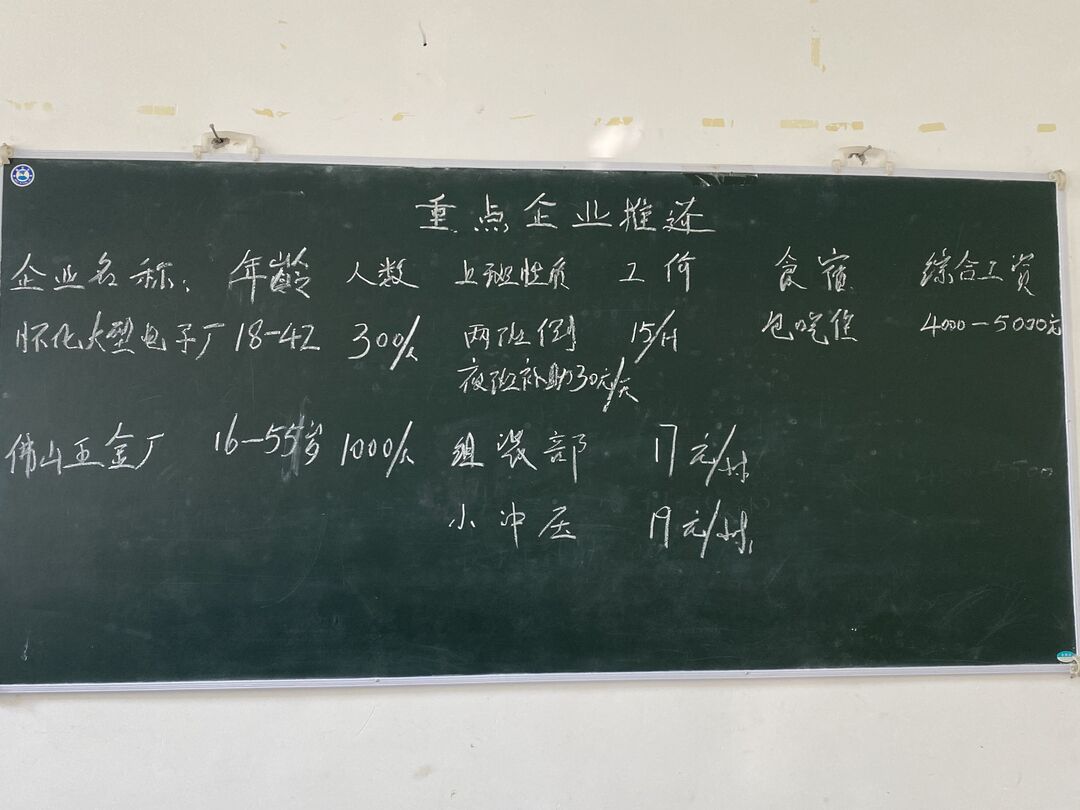 重点企业推还
企业名称： 年龄 人数 上班性质 工价 食宿 综合工资
怀化大型电子厂 18-42 300/人 两班倒 15/时 包吃住 4000-5000元
夜班补助30元/天
佛山五金厂 16-55岁 1000/人 组装部 17元/时
小冲压 19元/时